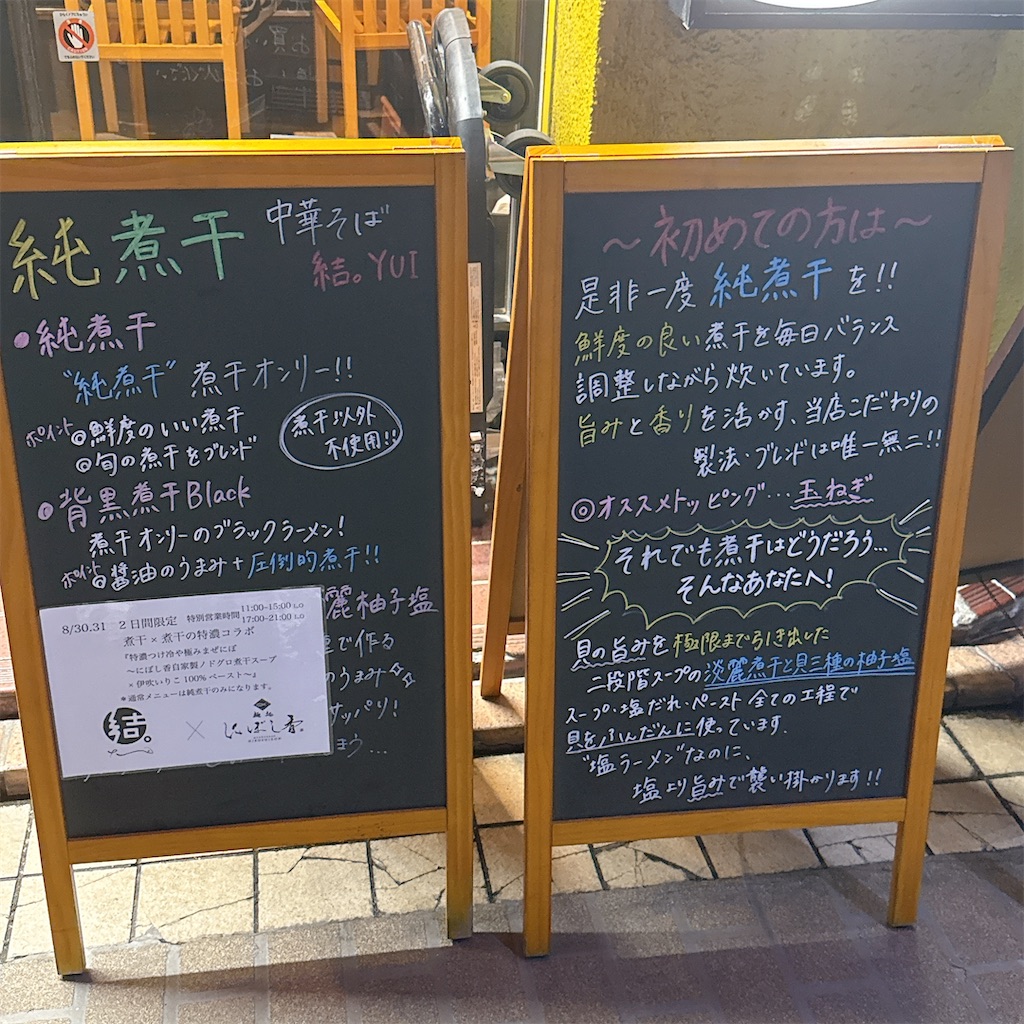 純煮干
中華そば
結。YUI
・純煮干
"純煮干" 煮干オンリー!!
ポイント ◎鮮度のいい煮干
◎旬の煮干をブレンド
煮干以外
不使用!!
・背黒煮干Black
煮干オンリーのブラックラーメン!
ポイント ◎醤油のうまみ+圧倒的煮干!!
麗柚子塩
で作る
のうまみ
サッパリ!
8/30.31 2日間限定 特別営業時間 11:00~15:00 L.O
17:00~21:00 L.O
煮干×煮干の特濃コラボ
『特濃つけ冷や極みまぜにぼ
~にぼし香自家製ノドグロ煮干スープ
×伊吹いりこ100%ペースト~』
*通常メニューは純煮干のみになります。
結。 × 麺処 にぼし香。
~初めての方は~
是非一度 純煮干を!!
鮮度の良い煮干を毎日バランス
調整しながら炊いています。
旨みと香りを活かす、当店こだわりの
製法・ブレンドは唯一無二!!
◎オススメトッピング…玉ねぎ
それでも煮干はどうだろう…
そんなあなたへ!
貝の旨みを極限まで引き出した
二段階スープの淡麗煮干と貝三種の柚子塩
スープ・塩だれ・ペースト全ての工程で
貝をふんだんに使っています.
"塩ラーメン"なのに、
塩より旨みで襲い掛かります!!